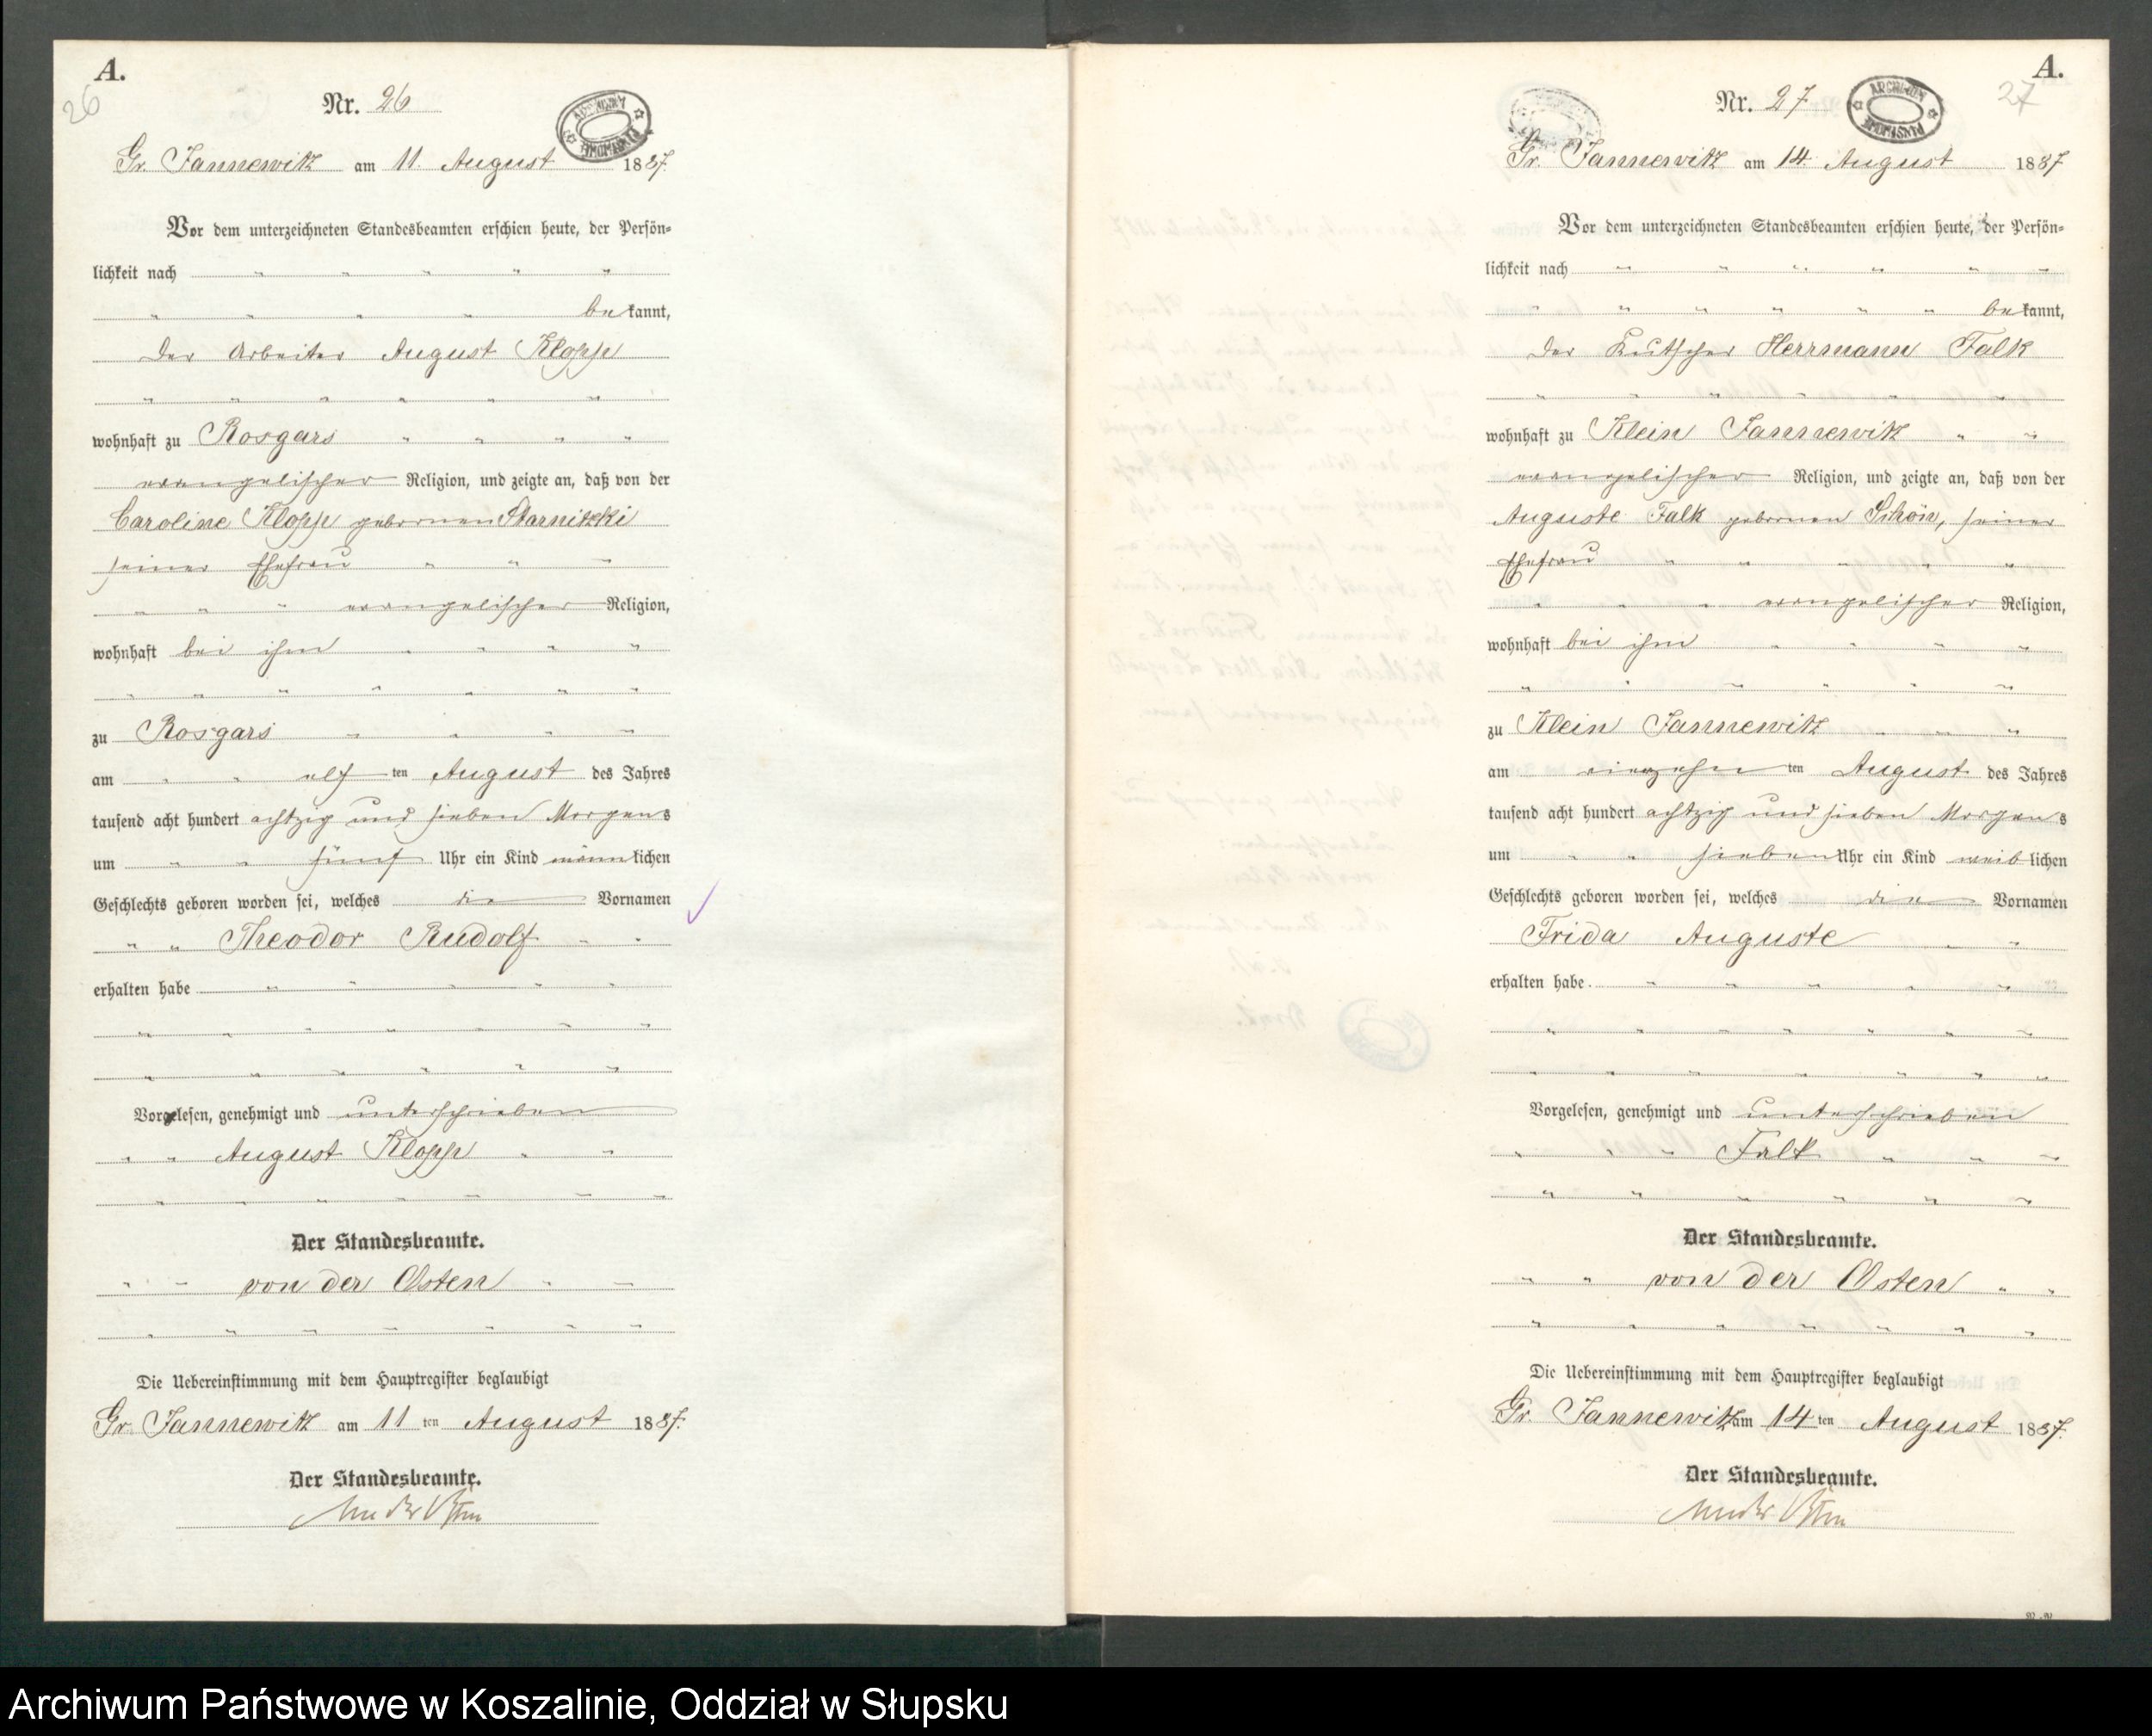 A.
26
Nr. 26
ARCHIWUM PAŃSTWOWE
Gr. Jannewitz am 11. August 1887.
Vor dem unterzeichneten Standesbeamten erschien heute, der Persön-
lichkeit nach
bekannt,
der Arbeiter August Klopp
wohnhaft zu Rosgars
evangelischer Religion, und zeigte an, daß von der
Caroline Klopp gebornen Starnitzki
seiner Ehefrau
evangelischer Religion,
wohnhaft bei ihm
zu Rosgars
am elf ten August des Jahres
tausend acht hundert achtzig und sieben Morgens
um fünf Uhr ein Kind männlichen
Geschlechts geboren worden sei, welches die Vornamen
Theodor Rudolf
erhalten habe
Vorgelesen, genehmigt und unterschrieben
August Klopp
Der Standesbeamte.
von der Osten
Die Uebereinstimmung mit dem Hauptregister beglaubigt
Gr. Jannewitz am 11 ten August 1887.
Der Standesbeamte.
von der Osten
A.
27
Nr. 27
ARCHIWUM PAŃSTWOWE
Gr. Jannewitz am 14. August 1887
Vor dem unterzeichneten Standesbeamten erschien heute, der Persön-
lichkeit nach
bekannt,
der Kutscher Herrmann Falk
wohnhaft zu Klein Jannewitz
evangelischer Religion, und zeigte an, daß von der
Auguste Falk gebornen Schön, seiner
Ehefrau
evangelischer Religion,
wohnhaft bei ihm
zu Klein Jannewitz
am vierzehn ten August des Jahres
tausend acht hundert achtzig und sieben Morgens
um sieben Uhr ein Kind weiblichen
Geschlechts geboren worden sei, welches die Vornamen
Frida Auguste
erhalten habe.
Vorgelesen, genehmigt und unterschrieben
Falk
Der Standesbeamte.
von der Osten
Die Uebereinstimmung mit dem Hauptregister beglaubigt
Gr. Jannewitz am 14 ten August 1887.
Der Standesbeamte.
von der Osten
Archiwum Państwowe w Koszalinie, Oddział w Słupsku